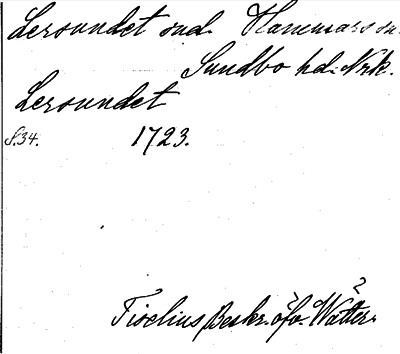 Lersundet sund. Hammars sn.
Sundbo hd. Nrk.
Lersundet
S. 34. 1723.
Tiselius, Beskr. öfv. Wätter.